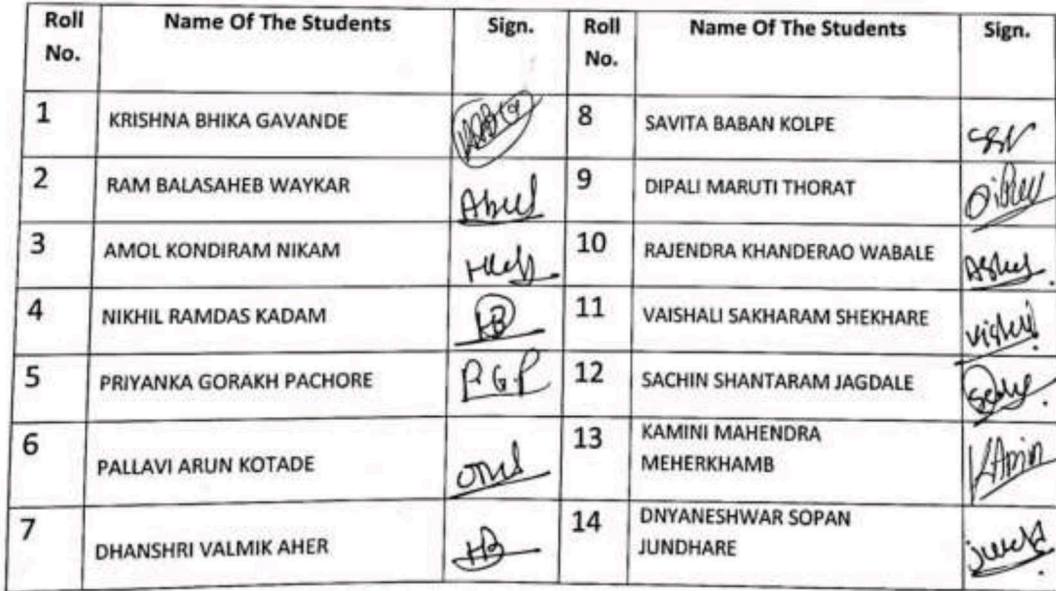 Roll No. Name Of The Students Sign. Roll No. Name Of The Students Sign.
1 KRISHNA BHIKA GAVANDE 8 SAVITA BABAN KOLPE
2 RAM BALASAHEB WAYKAR 9 DIPALI MARUTI THORAT
3 AMOL KONDIRAM NIKAM 10 RAJENDRA KHANDERAO WABALE
4 NIKHIL RAMDAS KADAM 11 VAISHALI SAKHARAM SHEKHARE
5 PRIYANKA GORAKH PACHORE PGP 12 SACHIN SHANTARAM JAGDALE
6 PALLAVI ARUN KOTADE 13 KAMINI MAHENDRA MEHERKHAMB
7 DHANSHRI VALMIK AHER 14 DNYANESHWAR SOPAN JUNDHARE